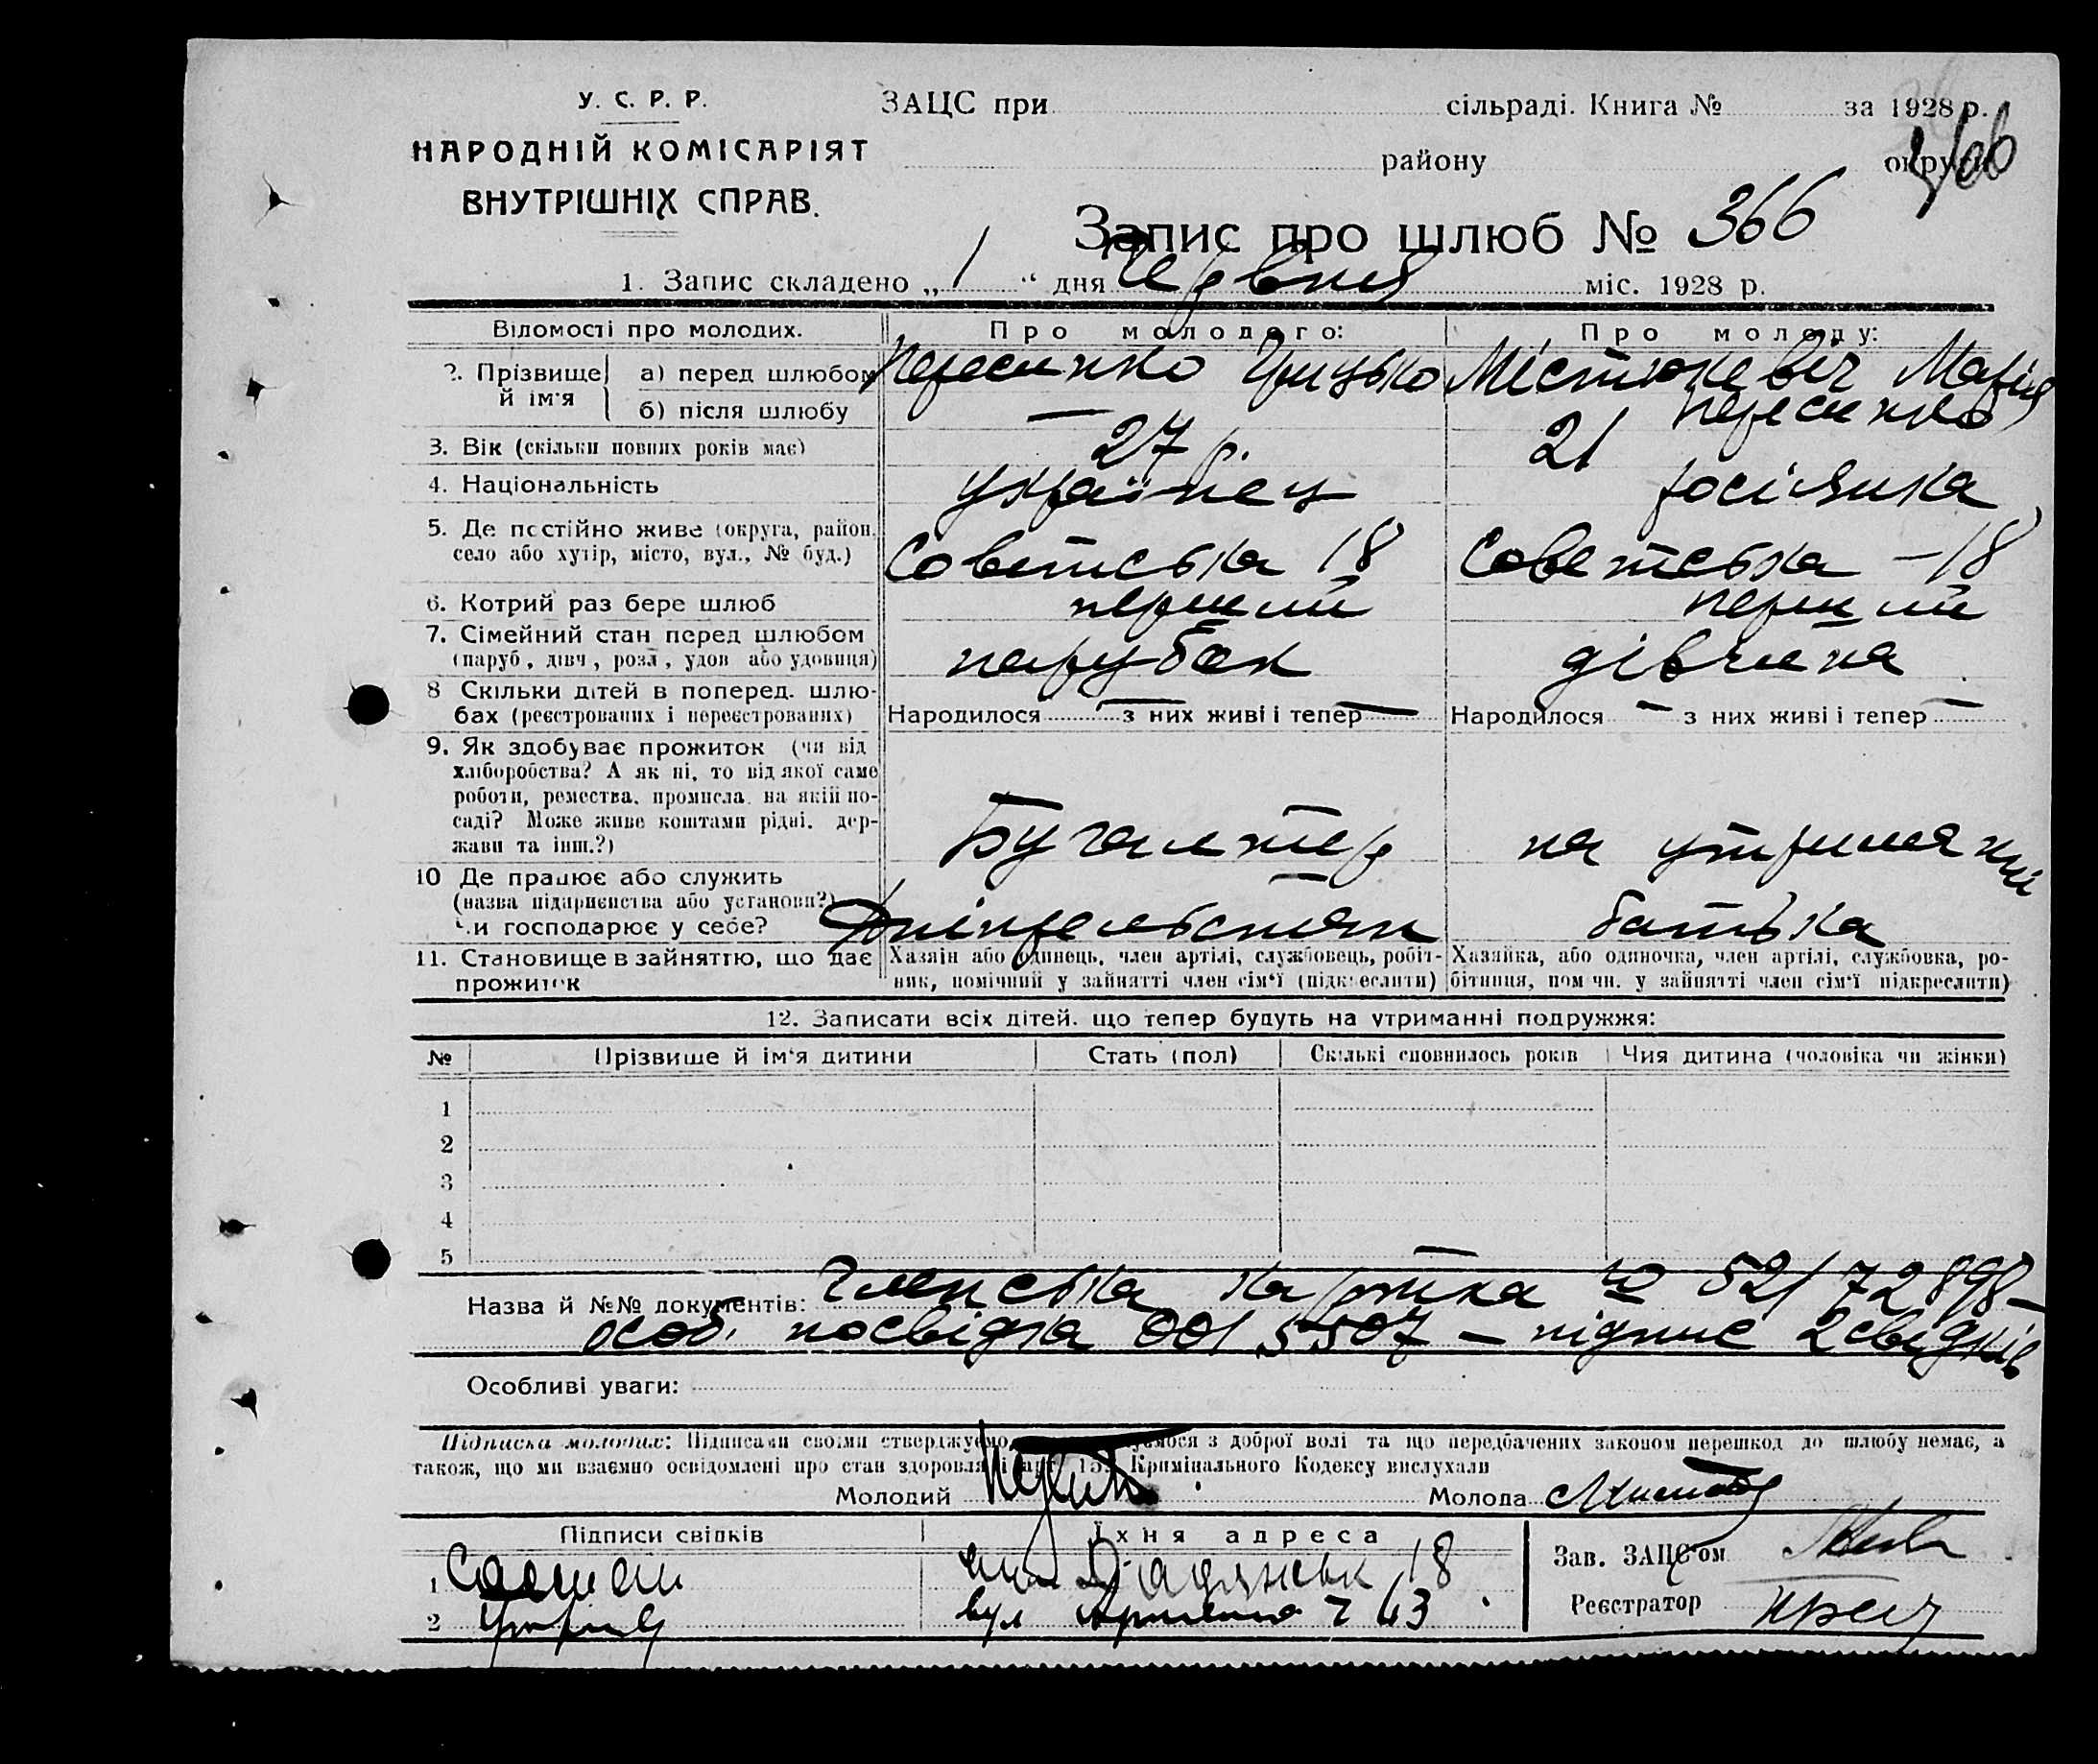 У. С. Р. Р.
НАРОДНІЙ КОМІСАРІЯТ
ВНУТРІШНІХ СПРАВ.
ЗАЦС при сільраді. Книга № за 1928 р.
району округи
Запис про шлюб № 366
1. Запис складено „ 1 “ дня Червня міс. 1928 р.
Відомості про молодих. Про молодого: Про молоду:
2. Прізвище й ім'я а) перед шлюбом Грицько Містюкевіч Марія
б) після шлюбу —
3. Вік (скільки повних років має) 27 р. 21
4. Національність українец росіянка
5. Де постійно живе (округа, район, село або хутір, місто, вул., № буд.) Советська 18 Советська – 18
6. Котрий раз бере шлюб перший перший
7. Сімейний стан перед шлюбом (паруб., дівч., розл., удов або удовиця) парубок дівчина
8 Скільки дітей в поперед. шлюбах (реєстрованих і нереєстрованих) Народилося — з них живі і тепер — Народилося — з них живі і тепер —
9. Як здобуває прожиток (чи від хліборобства? А як ні, то від якої саме роботи, ремества, промисла, на якій посаді? Може живе коштами рідні, держави та інш.?) Бугалтер на утриманні
10 Де працює або служить (назва підприємства або установи?) чи господарює у себе? батька
11. Становище в зайняттю, що дає прожиток Хазяїн або одинець, член артілі, службовець, робітник, помічний у зайнятті член сім'ї (підкреслити) Хазяйка, або одиночка, член артілі, службовка, робітниця, помічн. у зайнятті член сім'ї підкреслити)
12. Записати всіх дітей, що тепер будуть на утриманні подружжя:
№ Прізвище й ім'я дитини Стать (пол) Скількі сповнилось років Чия дитина (чоловіка чи жінки)
1
2
3
4
5
Назва й №№ документів: Членська картка № 521 72898 –
особ. посвідка 001 5507 – підпис 2 свідків
Особливі уваги:
Підписка молодих: Підписами своїми стверджуємо, з доброї волі та що передбачених законом перешкод до шлюбу немає, а
також, що ми взаємно освідомлені про стан здоровля і Кримінального Кодексу вислухали
Молодий Молода
Підписи свідків Їхня адреса
1 18
2 вул 43
Зав. ЗАЦС'ом
Реєстратор